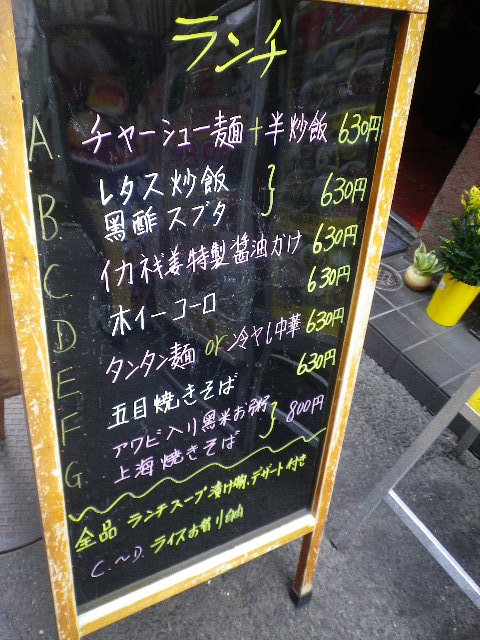 ランチ
A. チャーシュー麺+半炒飯 630円
B. レタス炒飯
黒酢スブタ } 630円
C. イカ祢姜特製醤油かけ 630円
D ホイーコーロ 630円
E タンタン麺 or 冷やし中華 630円
F 五目焼きそば 630円
G. アワビ入り黒米お粥
上海焼きそば } 800円
全品 ランチスープ 漬け物、デザート付き
C.〜D. ライスお替り自由